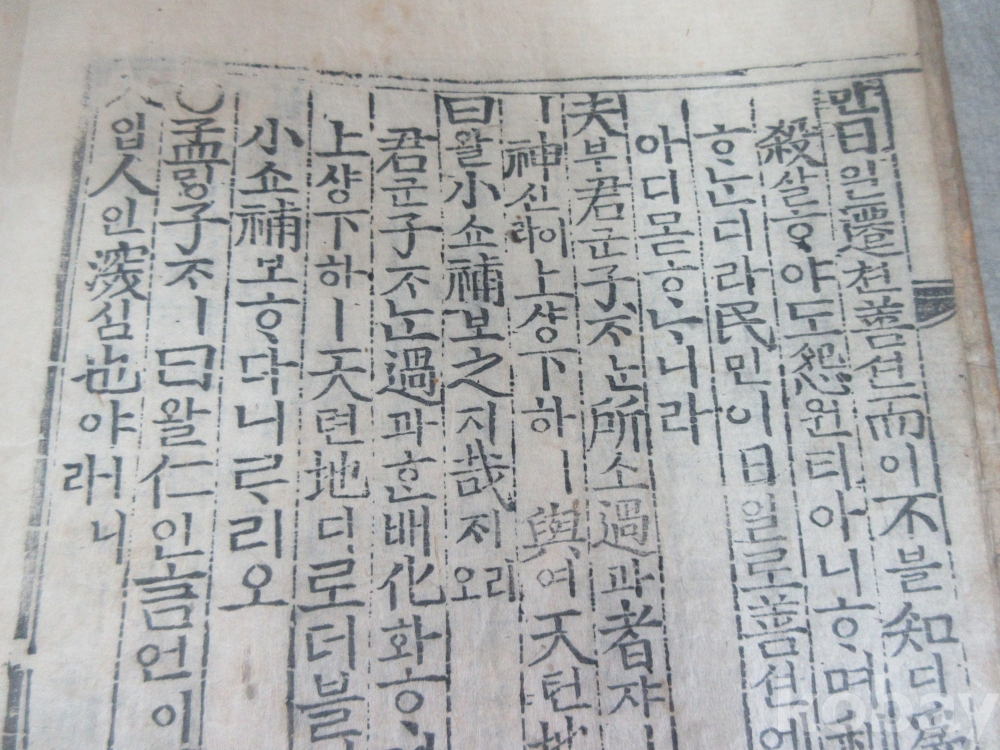 만日일遷쳔善션而이不블知디爲
殺살ᄒᆞ야도怨원티아니ᄒᆞ며利
ᄒᆞᄂᆞᆫ디라民민이日일로善션에
아디몯ᄒᆞᄂᆞ니라
夫부君군子ᄌᆞᄂᆞᆫ所소過과者쟈
ㅣ神신이라上샹下하ㅣ與여天텬地
曰왈小쇼補보之지哉ᄌᆡ리오
君군子ᄌᆞᄂᆞᆫ過과ᄒᆞᆫ배化화ᄒᆞ며
上샹下하ㅣ天텬地디로더블
小쇼補보ᄒᆞ다니ᄅᆞ리오
○孟ᄆᆡᆼ子ᄌᆞㅣ曰왈仁인言언이
入입人인深심也야래니